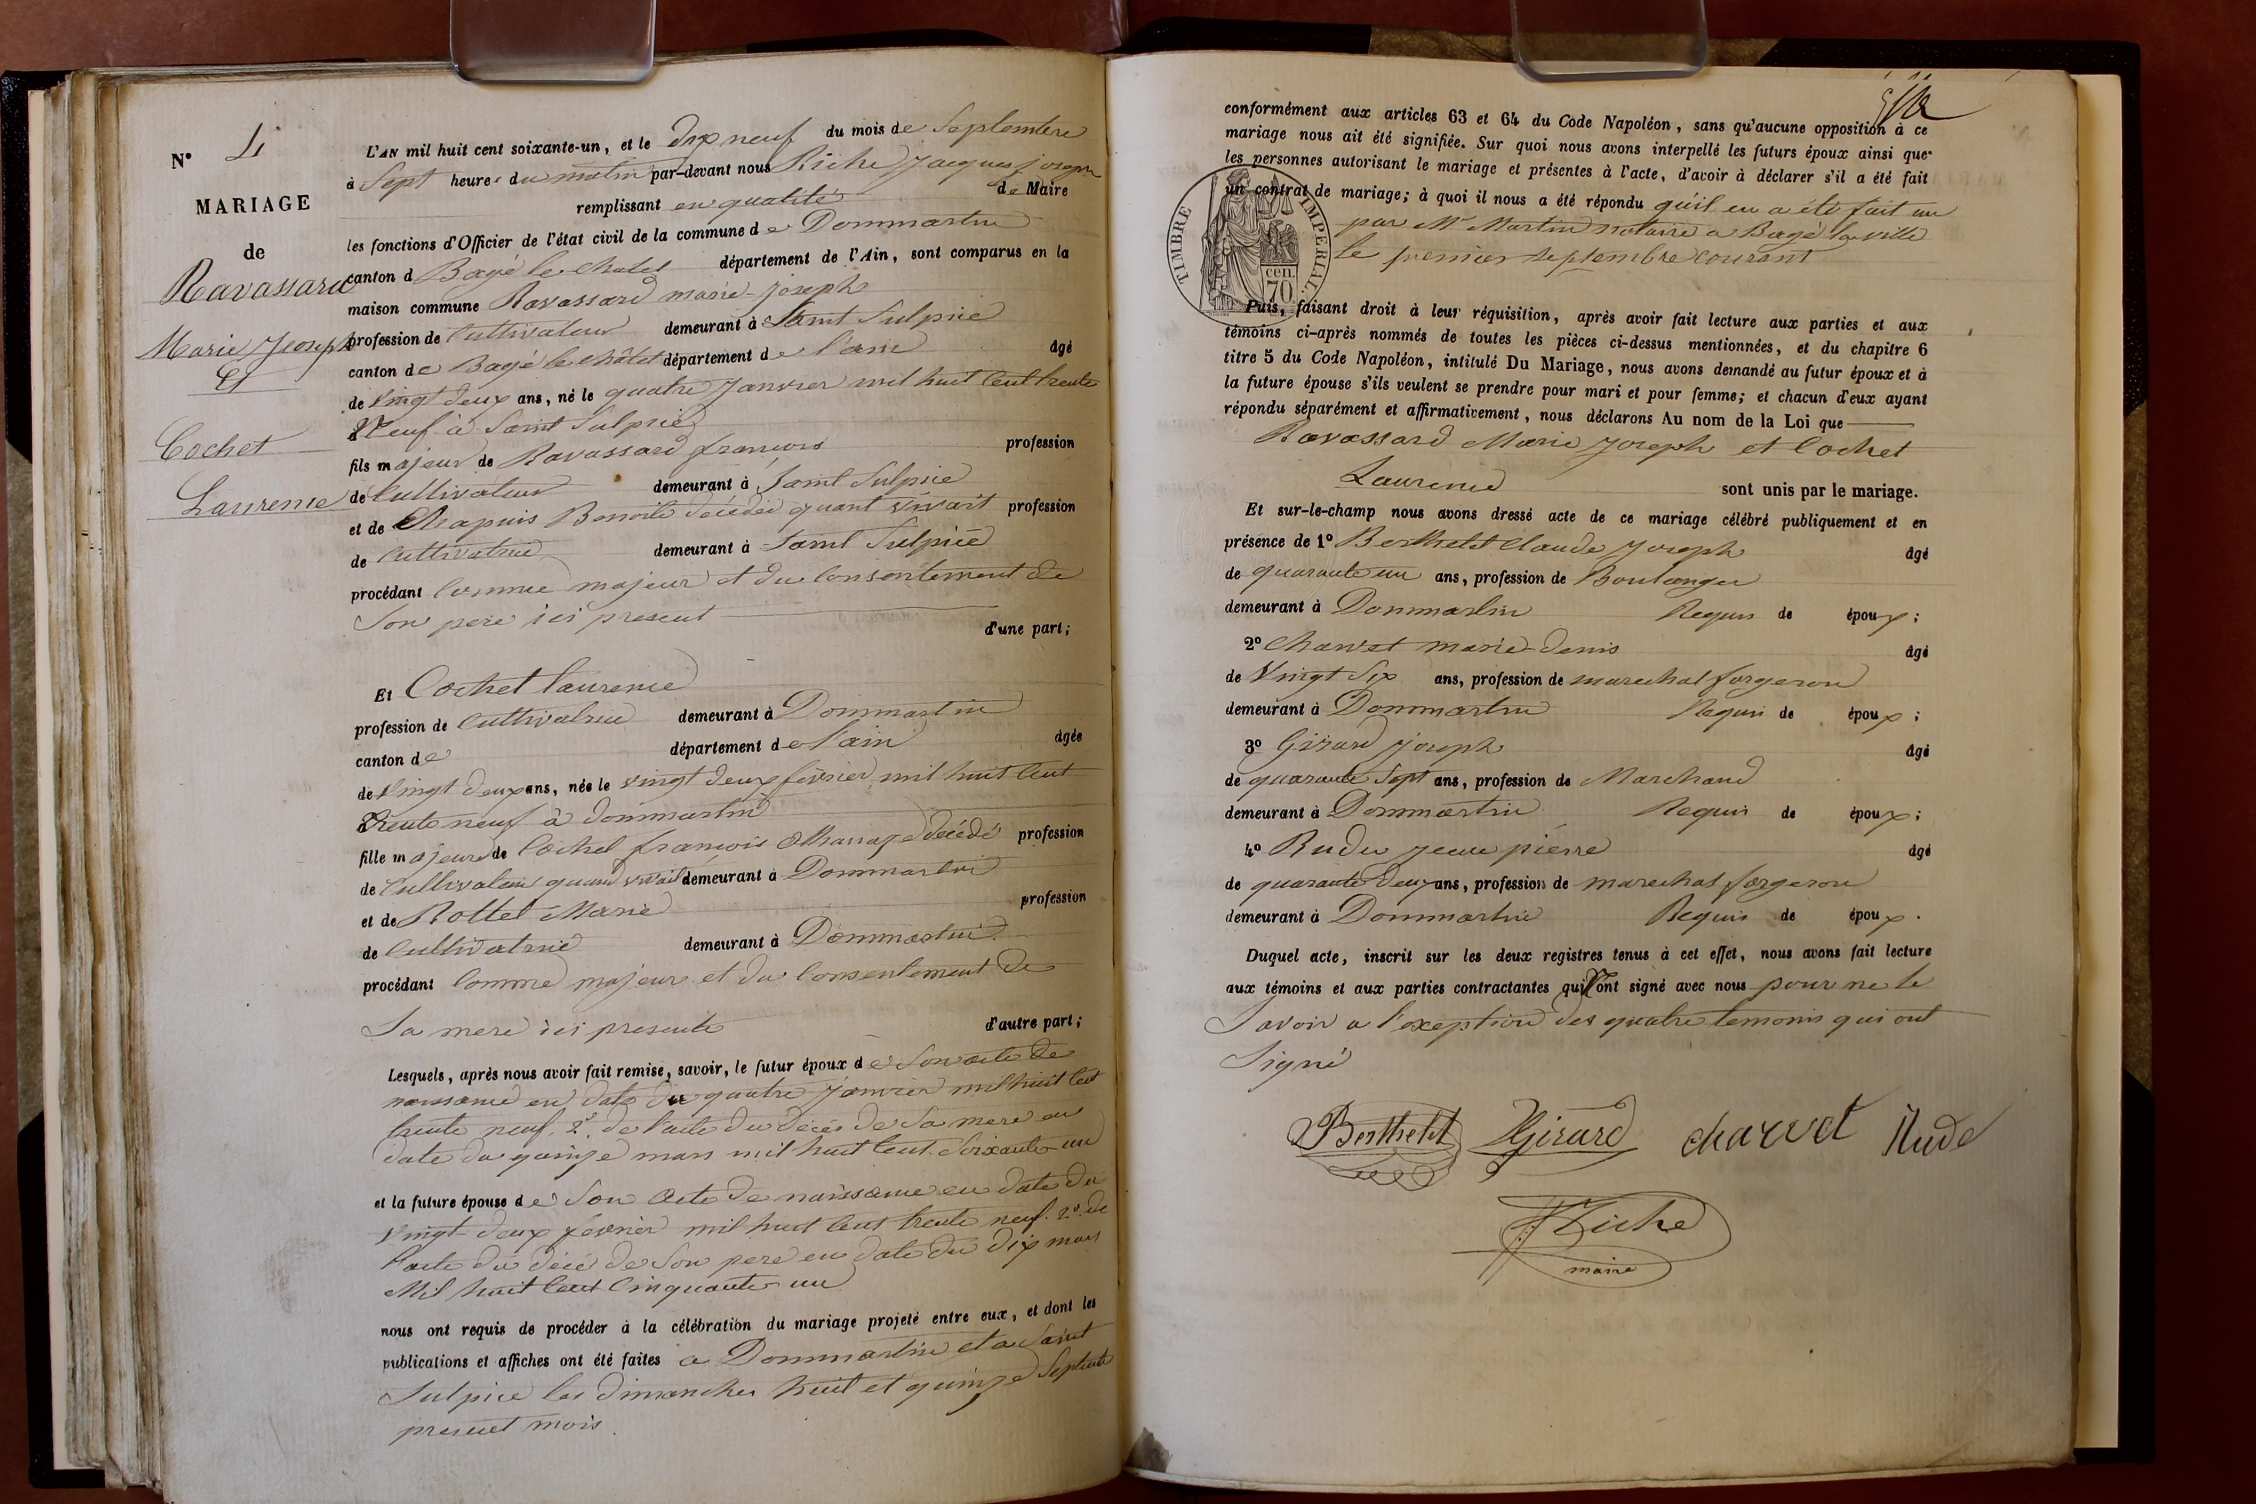 N° 4
MARIAGE
de
Ravassard
Marie Joseph
Et
Cochet
Laurence
L'AN mil huit cent soixante-un, et le dix neuf du mois de Septembre
à Sept heures du matin par-devant nous Riche Jacques joseph
remplissant en qualité de Maire
les fonctions d'Officier de l'état civil de la commune de Dommartin
canton d Bagé le chatel département de l'Ain, sont comparus en la
maison commune Ravassard marie-joseph
profession de Cultivateur demeurant à Saint Sulpice
canton de Bagé le châtel département de l'ain âgé
de Vingt deux ans, né le quatre janvier mil huit Cent trente
Neuf à Saint Sulpice
fils majeur de Ravassard françois profession
de Cultivateur demeurant à Saint Sulpice
et de Chapuis Benoite décédée quant vivait profession
de Cultivatrice demeurant à Saint Sulpice
procédant Comme majeur et du Consentement de
Son pere ici present d'une part;
Et Cochet laurence
profession de Cultivatrice demeurant à Dommartin
canton de département de l'ain âgée
de Vingt deux ans, née le vingt deux février mil huit Cent
trente neuf à dommartin
fille majeure de Cochet françois décédé profession
de Cultivateur quand vivait demeurant à Dommartin
et de Rottet Marie profession
de Cultivatrice demeurant à Dommartin
procédant Comme majeur et du Consentement de
Sa mere ici presente d'autre part;
Lesquels, après nous avoir fait remise, savoir, le futur époux de Son acte de
naissance en date du quatre janvier mil huit Cent
trente neuf. 2° de l'acte du décès de Sa mere en
date du quinze mars mil huit Cent Soixante un
et la future épouse de Son acte de naissance en date du
Vingt deux février mil huit Cent trente neuf. 2° de
l'acte du décé de Son pere en date du dix mars
Mil huit Cent Cinquante un
nous ont requis de procéder à la célébration du mariage projeté entre eux, et dont les
publications et affiches ont été faites a Dommartin et a Saint
Sulpice les dimanches huit et quinze Septembre
present mois.
conformément aux articles 63 et 64 du Code Napoléon, sans qu'aucune opposition à ce
mariage nous ait été signifiée. Sur quoi nous avons interpellé les futurs époux ainsi que
les personnes autorisant le mariage et présentes à l'acte, d'avoir à déclarer s'il a été fait
un contrat de mariage; à quoi il nous a été répondu qu'il en a été fait un
par Mr Martin notaire a Bagé la ville
le premier Septembre Courant
TIMBRE IMPERIAL
cen.
70
Puis, faisant droit à leur réquisition, après avoir fait lecture aux parties et aux
témoins ci-après nommés de toutes les pièces ci-dessus mentionnées, et du chapitre 6
titre 5 du Code Napoléon, intitulé Du Mariage, nous avons demandé au futur époux et à
la future épouse s'ils veulent se prendre pour mari et pour femme; et chacun d'eux ayant
répondu séparément et affirmativement, nous déclarons Au nom de la Loi que
Ravassard Marie Joseph et Cochet
Laurence sont unis par le mariage.
Et sur-le-champ nous avons dressé acte de ce mariage célébré publiquement et en
présence de 1° Berthelet Claude Joseph âgé
de quarante un ans, profession de Boulanger
demeurant à Dommartin Requis de époux;
2° Charvet marie-denis âgé
de Vingt Six ans, profession de marechal forgeron
demeurant à Dommartin Requis de époux;
3° Girard joseph âgé
de quarante Sept ans, profession de Marchand
demeurant à Dommartin Requis de époux;
4° Rude jean pierre âgé
de quarante deux ans, profession de marechal forgeron
demeurant à Dommartin Requis de époux.
Duquel acte, inscrit sur les deux registres tenus à cet effet, nous avons fait lecture
aux témoins et aux parties contractantes qui n'ont signé avec nous pour ne le
Savoir a l'exeption des quatre temonis qui ont
Signé
Berthelet Girard charvet Rude
Riche
maire